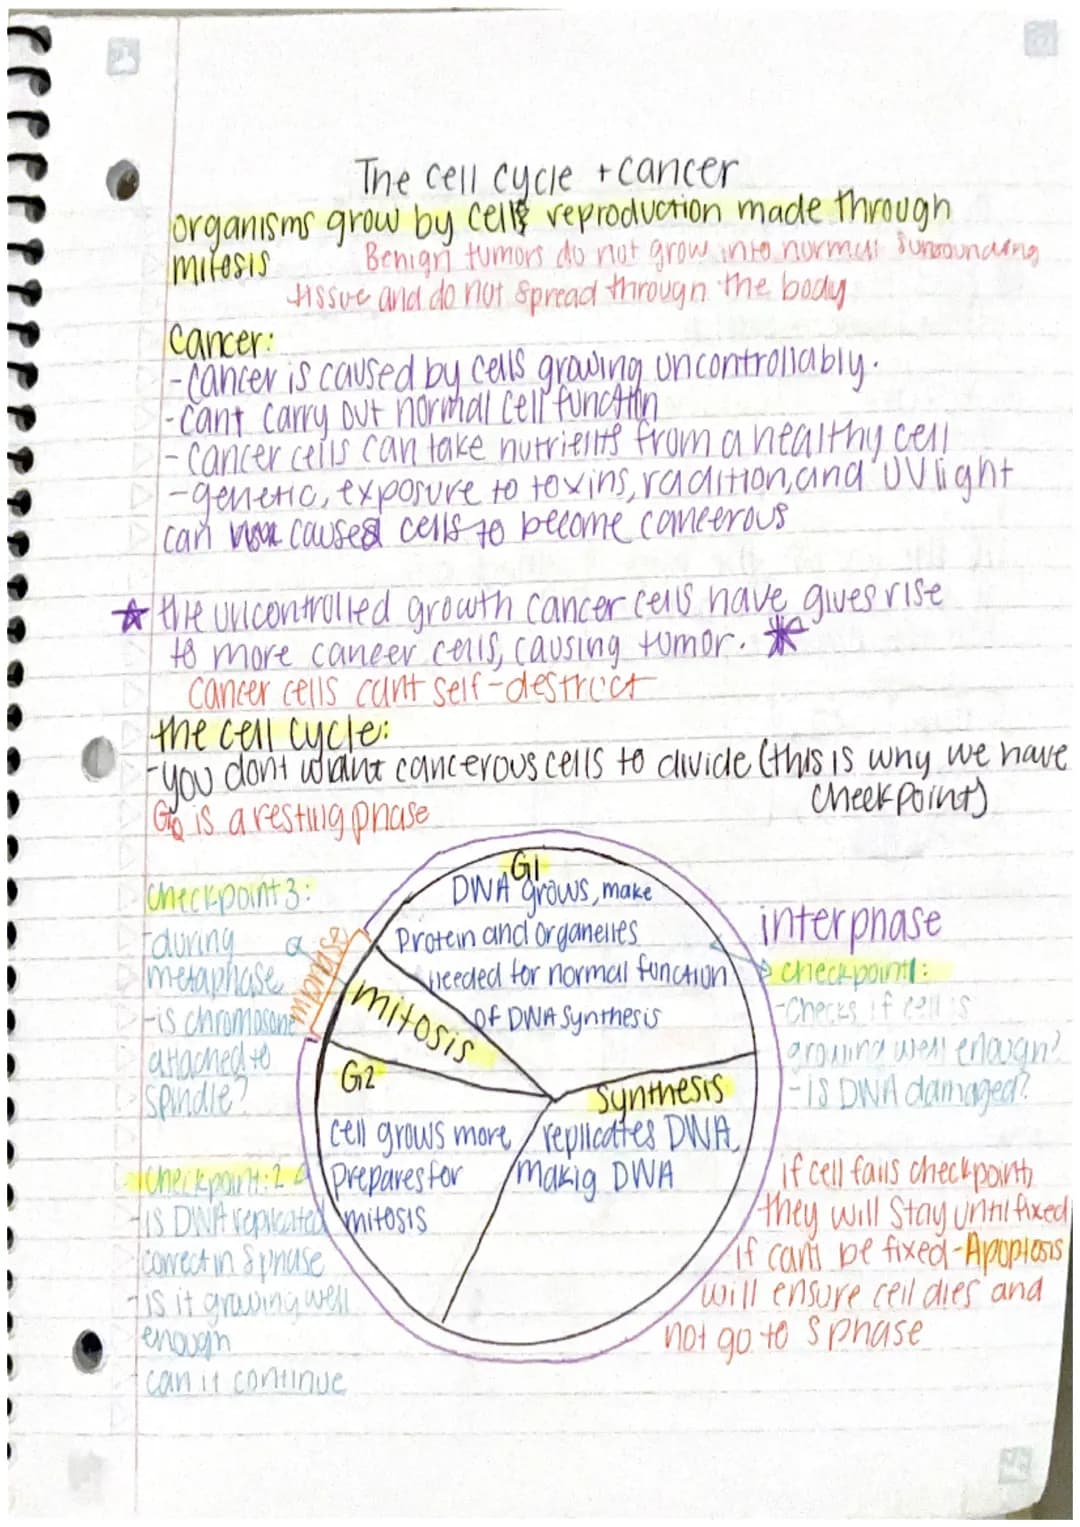 The cell cycle + cancer
organisms grow by cells reproduction made through
mitosis
Benign tumors do not grow into normal surrounding
tissue and do not spread through the body
Cancer:
-Cancer is caused by cells growing uncontrollably.
-cant carry out normal cell function
-cancer cells can take nutrients from a healthy cell
-genetic, exposure to toxins, radition, and UV light
can caused cells to become cancerous
★ the uncontrolled growth cancer cells have gives rise
to more cancer cells, causing tumor. ★
cancer cells cant self-destruct
the cell cycle:
-you dont want cancerous cells to divide (this is why we have
checkpoint)
G0 is a resting phase
G1
DNA grows, make
Protein and organelles
needed for normal function
of DNA synthesis
interphase
checkpoint 1:
-Checks if cell is
growing well enough?
-is DNA damaged?
checkpoint 3:
-during
metaphase
-is chromosome
attached to
spindle?
mitosis
G2
cell grows more
prepares for
mitosis
synthesis
replicates DNA,
makig DNA
checkpoint: 2
-is DNA replicated
correct in S phase
-is it growing well
enough
can it continue
if cell fails checkpoint,
they will stay until fixed
if cant be fixed-Apoptosis
will ensure cell dies and
not go to S phase